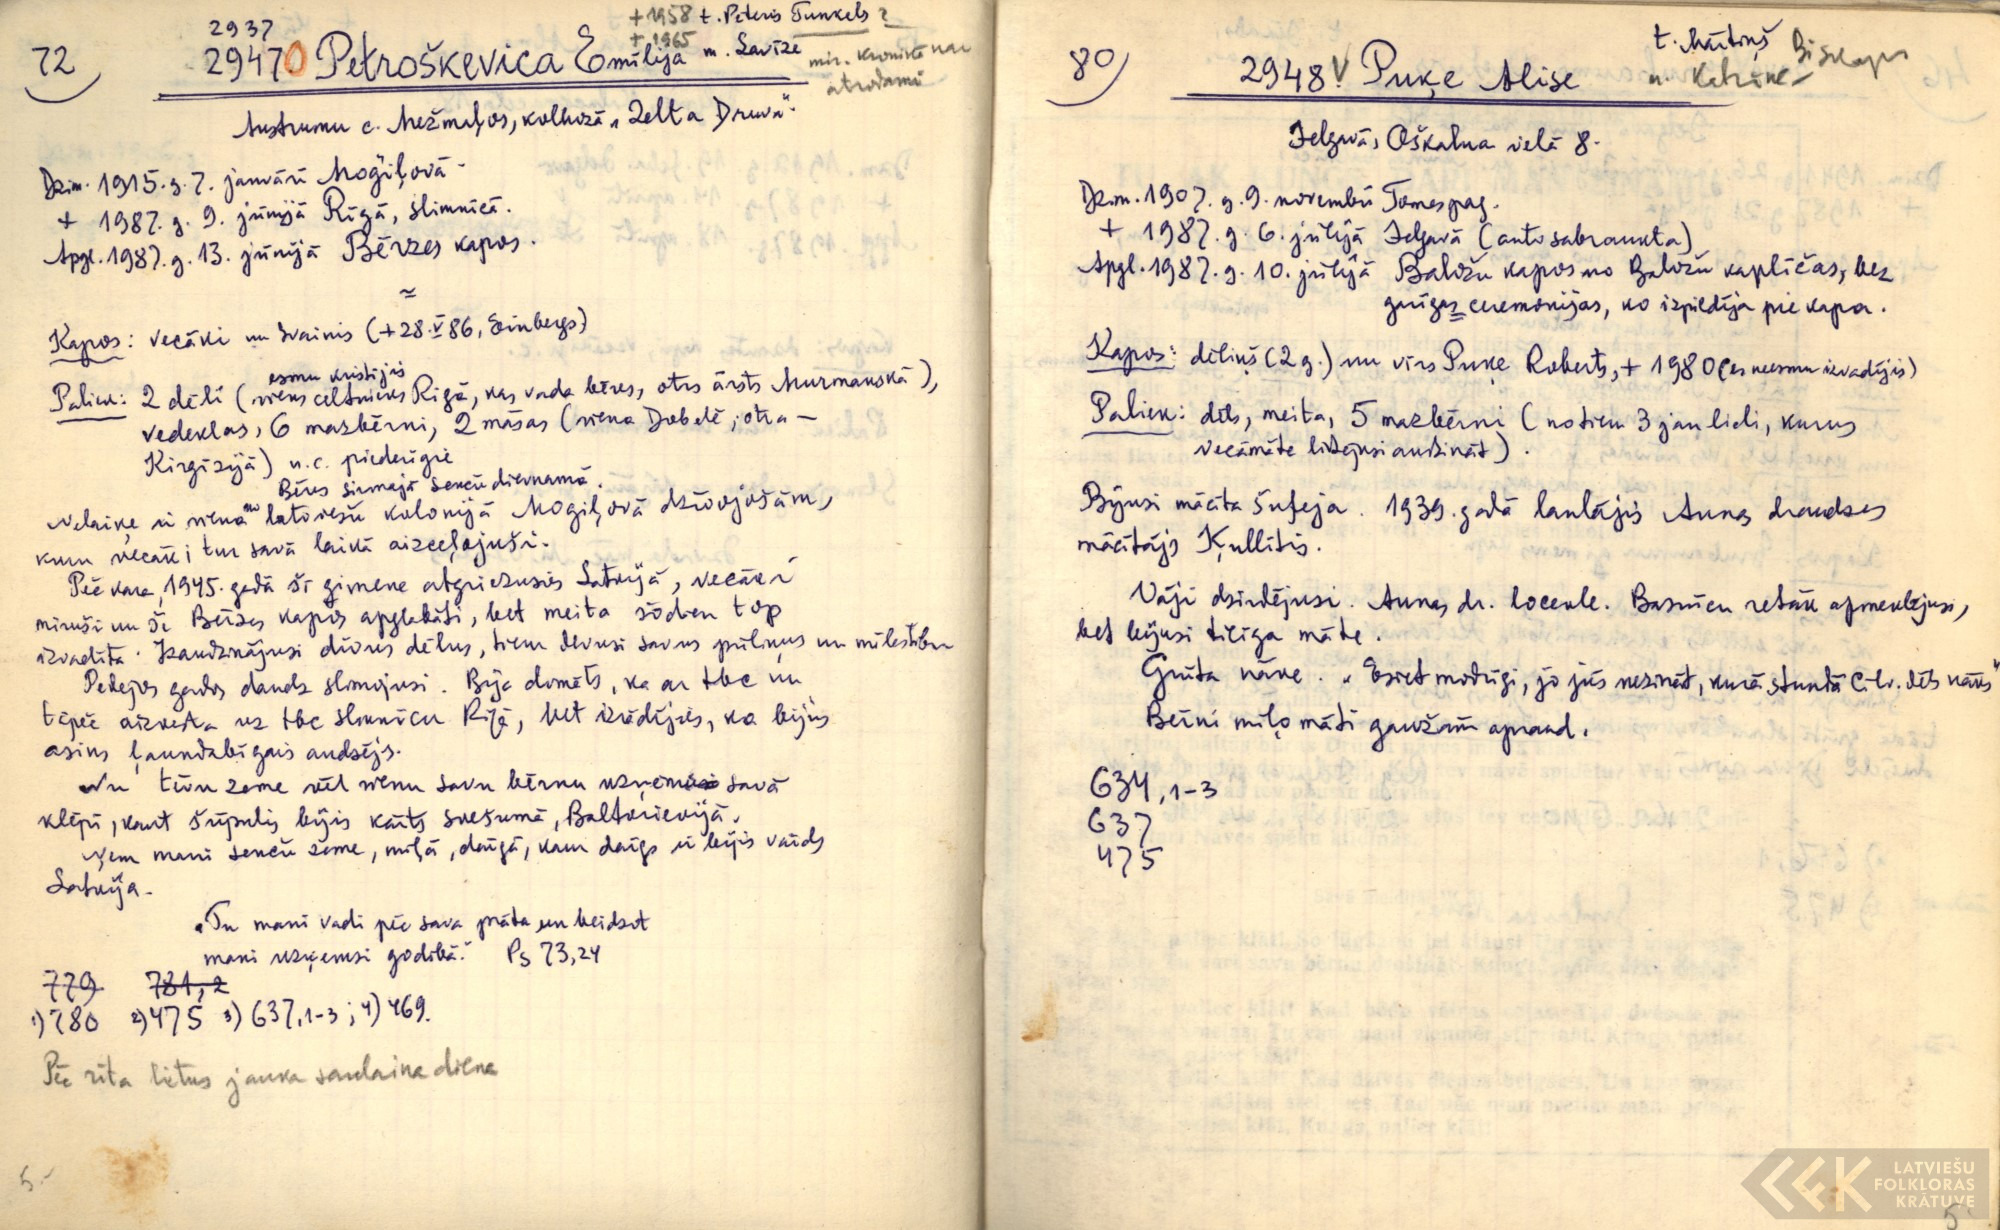 2937
+1958 t. Peteris Tunkels ?
72
29470 Petroškevica Emīlija
+ 1965 m. Lavīze
mir. kronikā nav
atrodami
Austrumu c. Mežmaļos, kolhozā "Zelta Druva"
Dzim. 1915. g. 7. janvārī Mogiļovā.
+ 1987. g. 9. jūnijā Rīgā, slimnīcā.
Apgl. 1987. g. 13. jūnijā Bērzes kapos.
Kapos: vecāki un svainis (+28.V 86, Einbergs)
esmu kristījis
Paliek: 2 dēli (viens celtnieks Rīgā, kas vada bēres, otrs ārsts Murmanskā),
vedeklas, 6 mazbērni, 2 māsas (viena Dobelē, otra –
Kirgīzijā) u.c. piederīgie
Bēres sirmajā senču dievnamā.
Nelaiķe ir viena no latviešu kolonijā Mogiļovā dzīvojošām,
kuru vecāki tur savā laikā aizceļojuši.
Pēc kara, 1945. gadā šī ģimene atgriezusies Latvijā, vecāki
miruši un še Bērzes kapos apglabāti, bet meita šodien top
izvadīta. Izaudzinājusi divus dēlus, tiem devusi savus pūliņus un mīlestību
Pēdējos gados daudz slimojusi. Bija domāts, ka ar tbc un
tāpēc aizvesta uz tbc slimnīcu Rīgā, bet izrādījies, ka bijis
asins ļaundabīgais audzējs.
Nu tēvu zeme vēl vienu savu bērnu uzņem savā
klēpī, kaut šūpulis bijis kārts svešumā, Baltkrievijā.
Ņem mani senču zeme, mīļā, dārgā, kam dārgs ir bijis vārds
Latvija.
"Tu mani vadi pēc sava prāta un beidzot
mani uzņemsi godībā." Ps 73,24
779 781,2
1) 780 2) 475 3) 637,1-3; 4) 469.
Pēc rīta lietus jauka saulaina diena
5.-
80
2948 V Puķe Alise
t. Mārtiņš
m. Katrīne
Biskaps
Jelgavā, Oškalna ielā 8.
Dzim. 1907. g. 9. novembrī Tomes pag.
+ 1987. g. 6. jūlijā Jelgavā (auto sabraukta)
Apgl. 1987. g. 10. jūlijā Baložu kapos no Baložu kapličas, bez
garīgas ceremonijas, ko izpildīja pie kapa.
Kapos: dēliņš (2 g.) un vīrs Puķe Roberts, + 1980 (es neesmu izvadījis)
Paliek: dēls, meita, 5 mazbērni (no tiem 3 jau lieli, kurus
vecāmāte līdzējusi audzināt).
Bijusi mācīta šuvēja. 1939. gadā laulājis Annas draudzes
mācītājs Ķullītis.
Vāji dzirdējusi. Annas dr. locekle. Baznīcu retāk apmeklējusi,
bet bijusi ticīga māte.
Grūta nāve. "Esiet modrīgi, jo jūs nezināt, kurā stundā Cilv. dēls nāks"
Bērni mīļo māti gaužām apraud.
634,1-3
637
475
5.-
LATVIEŠU
FOLKLORAS
KRĀTUVE